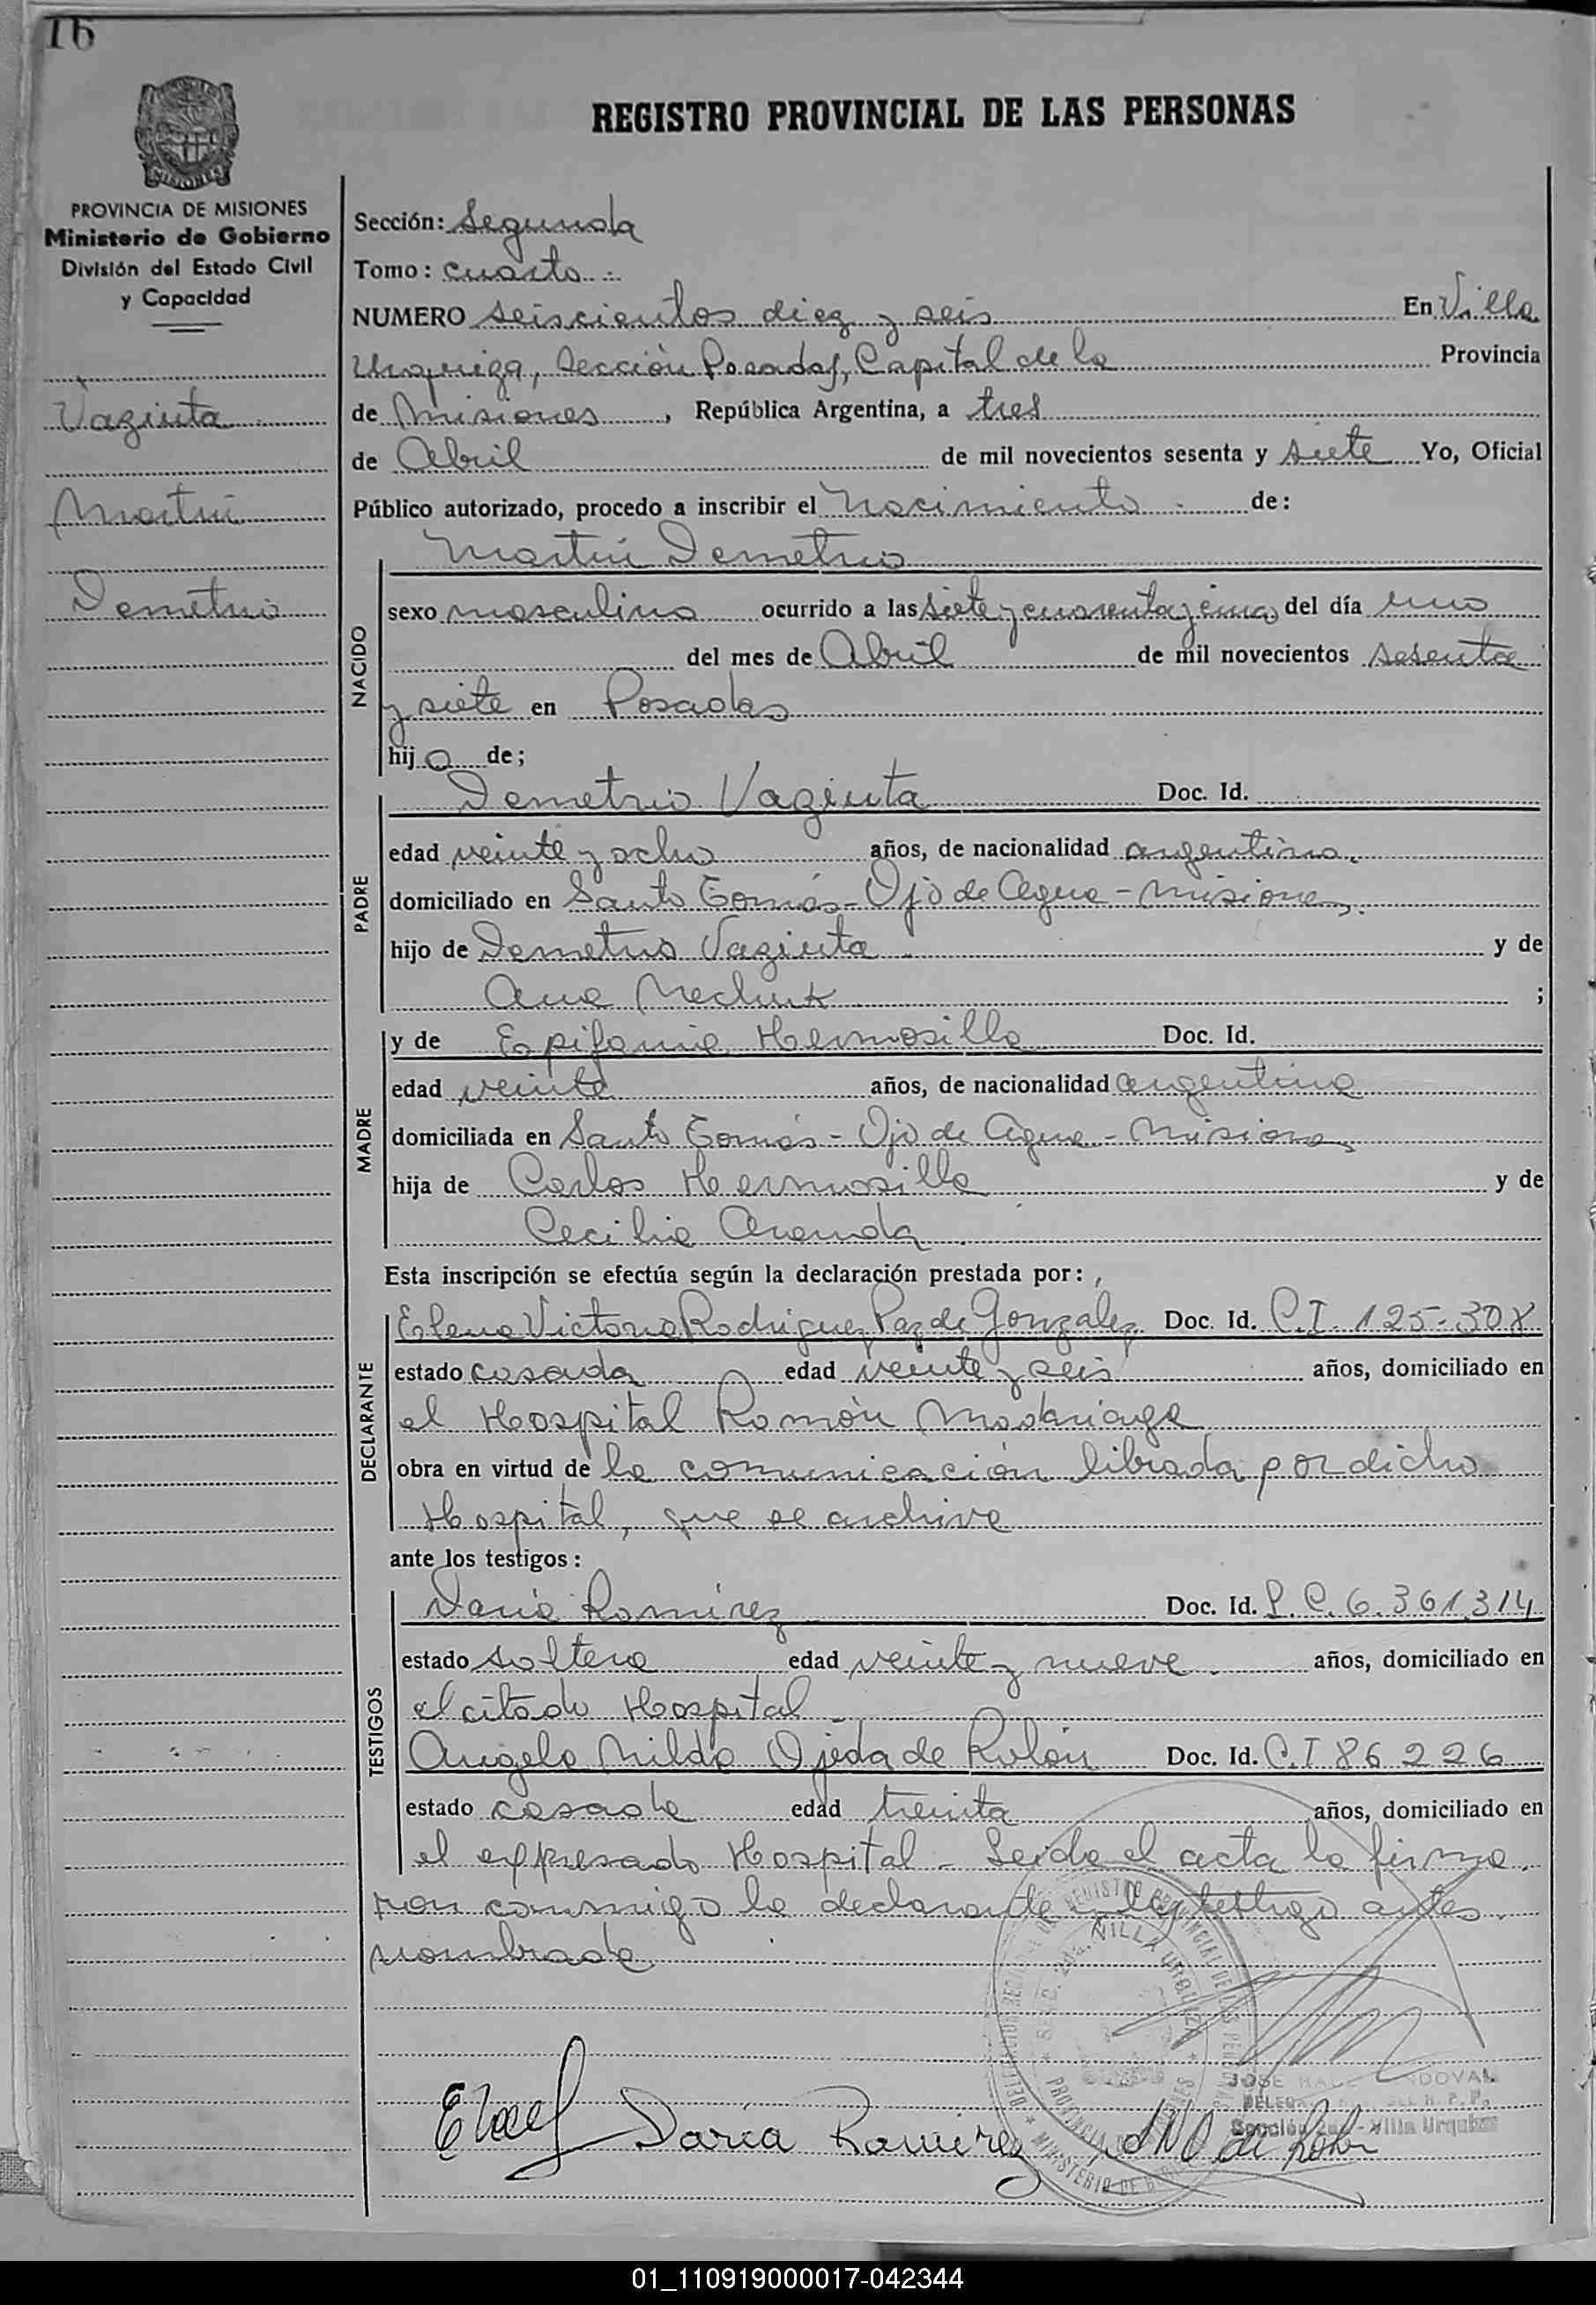 16
REGISTRO PROVINCIAL DE LAS PERSONAS
MISIONES
PROVINCIA DE MISIONES
Ministerio de Gobierno
División del Estado Civil
y Capacidad
Vaziuta
Martin
Demetrio
Sección: Segunda
Tomo: cuarto
NUMERO seiscientos diez y seis En Villa
Urquiza, Sección Posadas, Capital de la Provincia
de Misiones, República Argentina, a tres
de Abril de mil novecientos sesenta y siete Yo, Oficial
Público autorizado, procedo a inscribir el Nacimiento de:
Martin Demetrio
NACIDO
sexo masculino ocurrido a las siete y cuarenta y cinco del día uno
del mes de Abril de mil novecientos sesenta
y siete en Posadas
hijo de;
PADRE
Demetrio Vaziuta Doc. Id.
edad veinte y ocho años, de nacionalidad argentino.
domiciliado en Santo Tomás - Ojo de Agua - Misiones.
hijo de Demetrio Vaziuta y de
Ana ;
MADRE
y de Epifania Hermosilla Doc. Id.
edad veinte años, de nacionalidad argentina
domiciliada en Santo Tomás - Ojo de Agua - Misiones
hija de Carlos Hermosilla y de
Cecilia
Esta inscripción se efectúa según la declaración prestada por:
DECLARANTE
Elena Victoria Rodriguez Paz de Gonzalez Doc. Id. C.I. 125-308
estado casada edad veinte y seis años, domiciliado en
el Hospital Ramón Madariaga
obra en virtud de la comunicación librada por dicho
Hospital, que se archiva
ante los testigos:
TESTIGOS
Daria Ramirez Doc. Id. L.C. 6.361.314
estado soltera edad veinte y nueve años, domiciliado en
el citado Hospital
Angela Nilda Ojeda de Rolón Doc. Id. C.I 86226
estado casada edad treinta años, domiciliado en
el expresado Hospital - Leida el acta la firma
ron conmigo la declarante y los testigos antes
nombrada
VILLA URQUIZA
Daria Ramirez
JOSE
Sección 2da. - Villa Urquiza
01_110919000017-042344